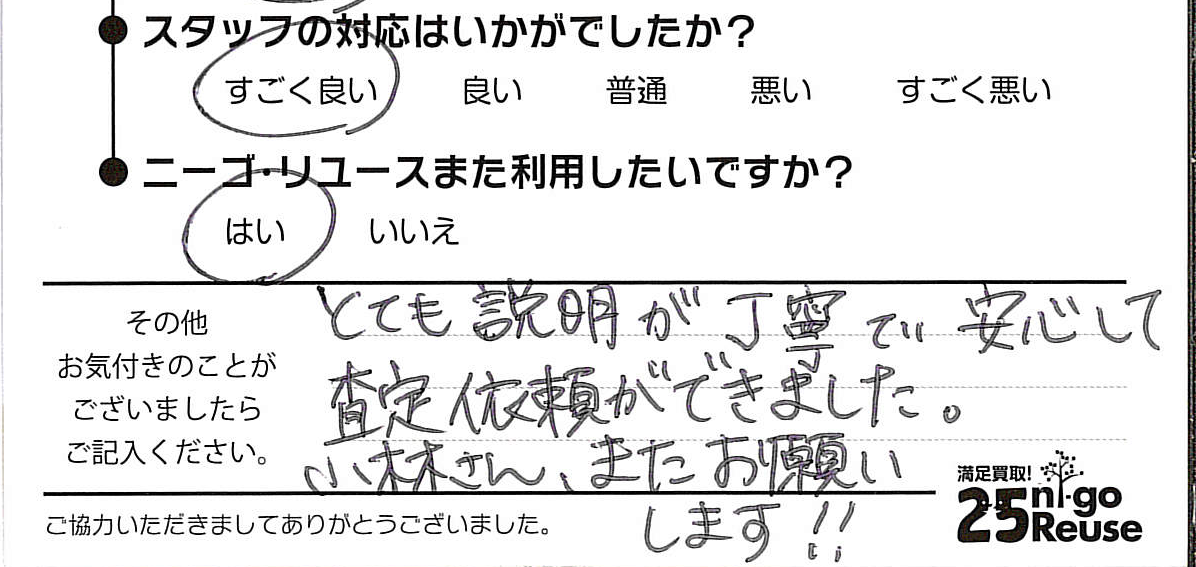 スタッフの対応はいかがでしたか？
すごく良い 良い 普通 悪い すごく悪い
ニーゴ・リユースまた利用したいですか？
はい いいえ
その他
お気付きのことが
ございましたら
ご記入ください。
とても説明が丁寧で安心して
査定依頼ができました。
小林さん、またお願い
します!!
ご協力いただきましてありがとうございました。
満足買取!
25 ni-go
Reuse